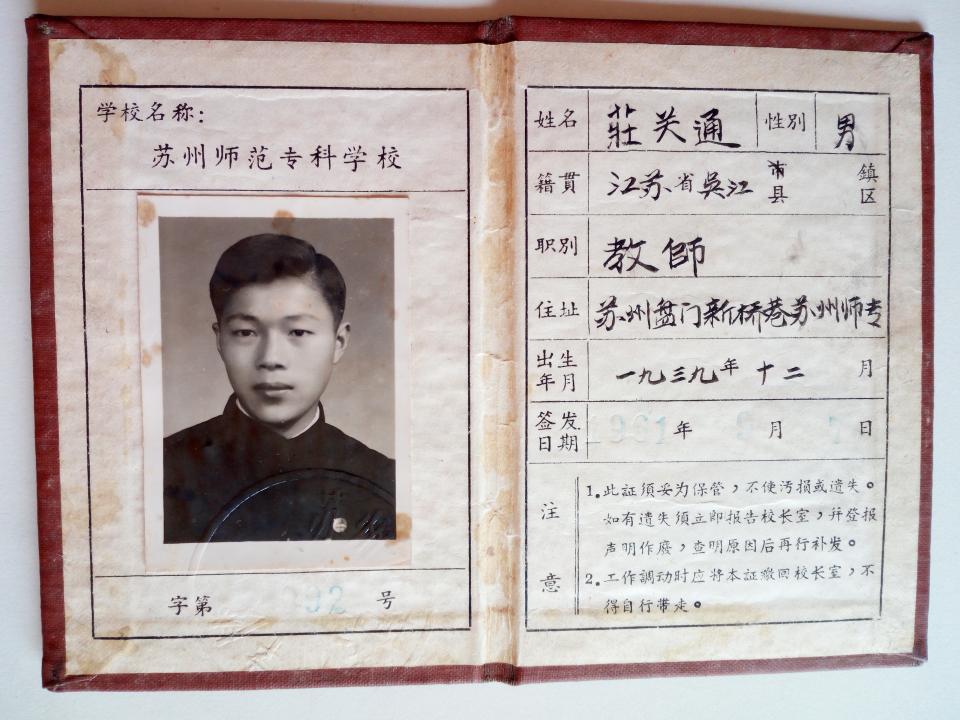 学校名称:
苏州师范专科学校
字第 92 号
姓名 莊关通 性別 男
籍貫 江苏省吳江 市县 鎮区
职別 教師
住址 苏州盘门新桥巷苏州师专
出生年月 一九三九年十二月
签发日期 1961年 月 日
注意
1.此証須妥为保管，不使汚損或遺失。
如有遺失須立即报告校长室，并登报
声明作废，查明原因后再行补发。
2.工作調动时应将本証缴回校长室，不
得自行带走。